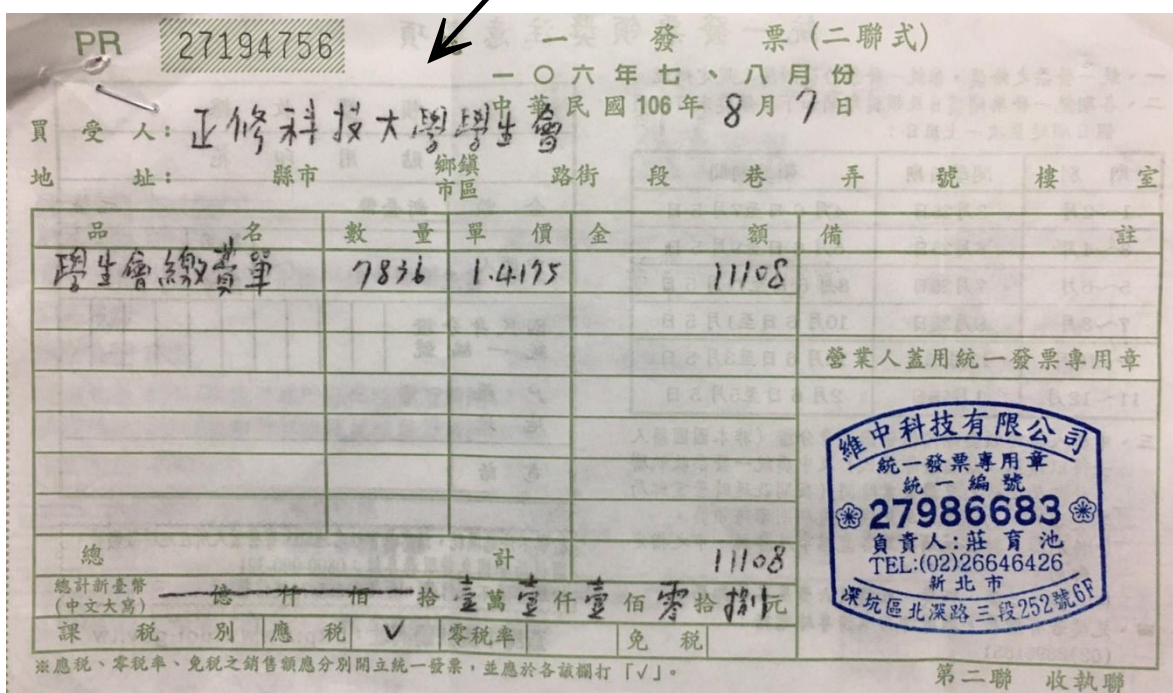 PR 27194756
一 發 票 (二聯式)
一〇六年七、八月份
中華民國106年8月7日
買受人：正修科技大學學生會
地址： 縣市 鄉鎮市區 路街 段 巷 弄 號 樓 室
品名 數量 單價 金額 備註
學生會繳費單 7836 1.4175 11108
營業人蓋用統一發票專用章
維中科技有限公司
統一發票專用章
統一編號
27986683
負責人:莊育池
TEL:(02)26646426
新北市
深坑區北深路三段252號6F
總計 11108
總計新臺幣(中文大寫) 億 仟 佰 拾 壹萬壹仟壹佰零拾捌元
課稅別 應稅 ✓ 零稅率 免稅
※應稅、零稅率、免稅之銷售額應分別開立統一發票，並應於各該欄打「✓」。
第二聯 收執聯